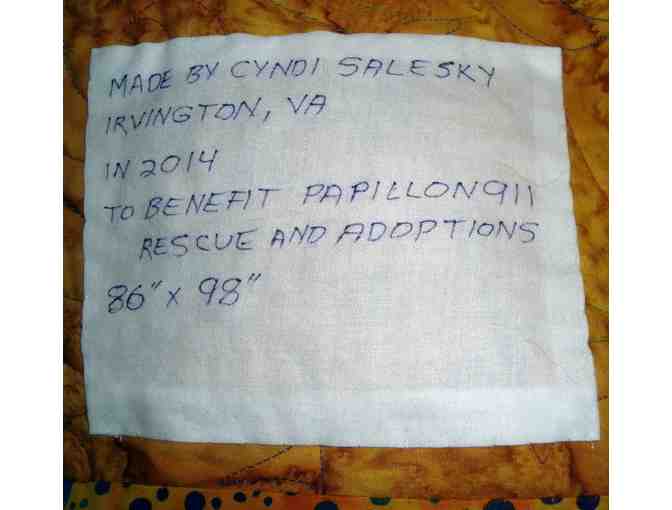 MADE BY CYNDI SALESKY
IRVINGTON, VA
IN 2014
TO BENEFIT PAPILLON911
RESCUE AND ADOPTIONS
86" x 98"